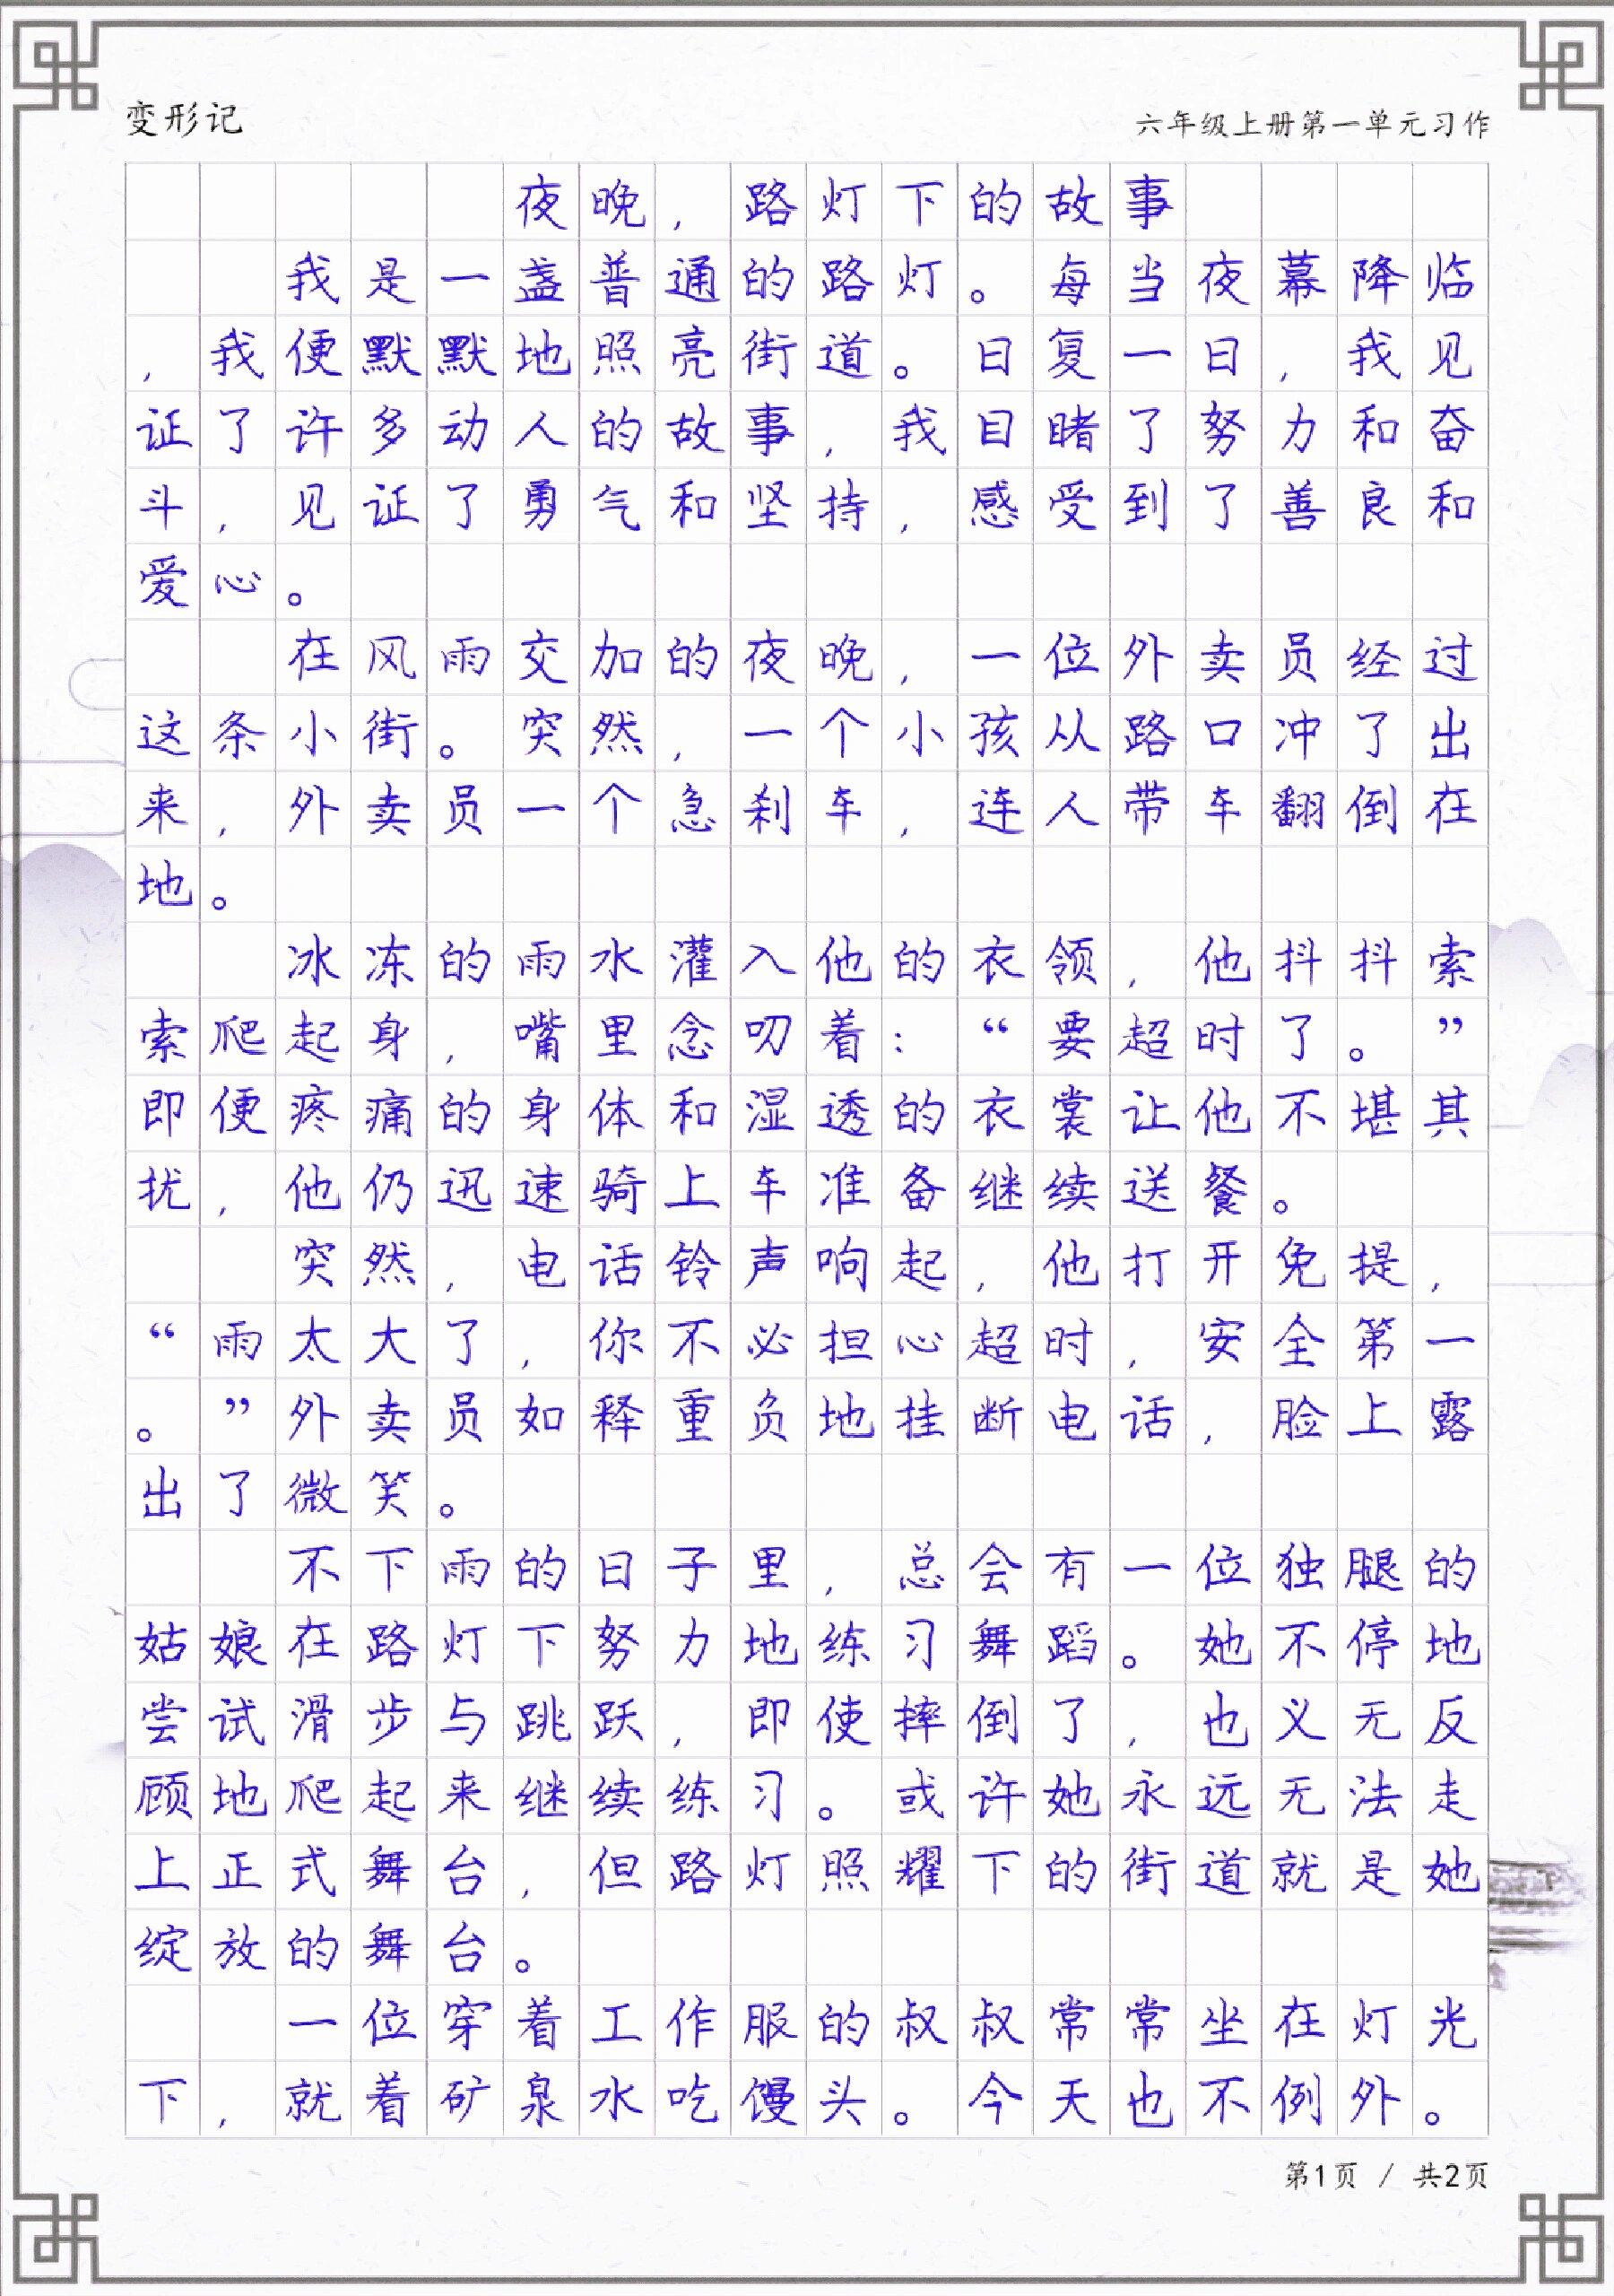 变形记
六年级上册第一单元习作
夜晚，路灯下的故事
我是一盏普通的路灯。每当夜幕降临
，我便默默地照亮街道。日复一日，我见
证了许多动人的故事，我目睹了努力和奋
斗，见证了勇气和坚持，感受到了善良和
爱心。
在风雨交加的夜晚，一位外卖员经过
这条小街。突然，一个小孩从路口冲了出
来，外卖员一个急刹车，连人带车翻倒在
地。
冰冻的雨水灌入他的衣领，他抖抖索
索爬起身，嘴里念叨着：“要超时了。”
即便疼痛的身体和湿透的衣裳让他不堪其
扰，他仍迅速骑上车准备继续送餐。
突然，电话铃声响起，他打开免提，
“雨太大了，你不必担心超时，安全第一
。”外卖员如释重负地挂断电话，脸上露
出了微笑。
不下雨的日子里，总会有一位独腿的
姑娘在路灯下努力地练习舞蹈。她不停地
尝试滑步与跳跃，即使摔倒了，也义无反
顾地爬起来继续练习。或许她永远无法走
上正式舞台，但路灯照耀下的街道就是她
绽放的舞台。
一位穿着工作服的叔叔常常坐在灯光
下，就着矿泉水吃馒头。今天也不例外。
第1页 / 共2页